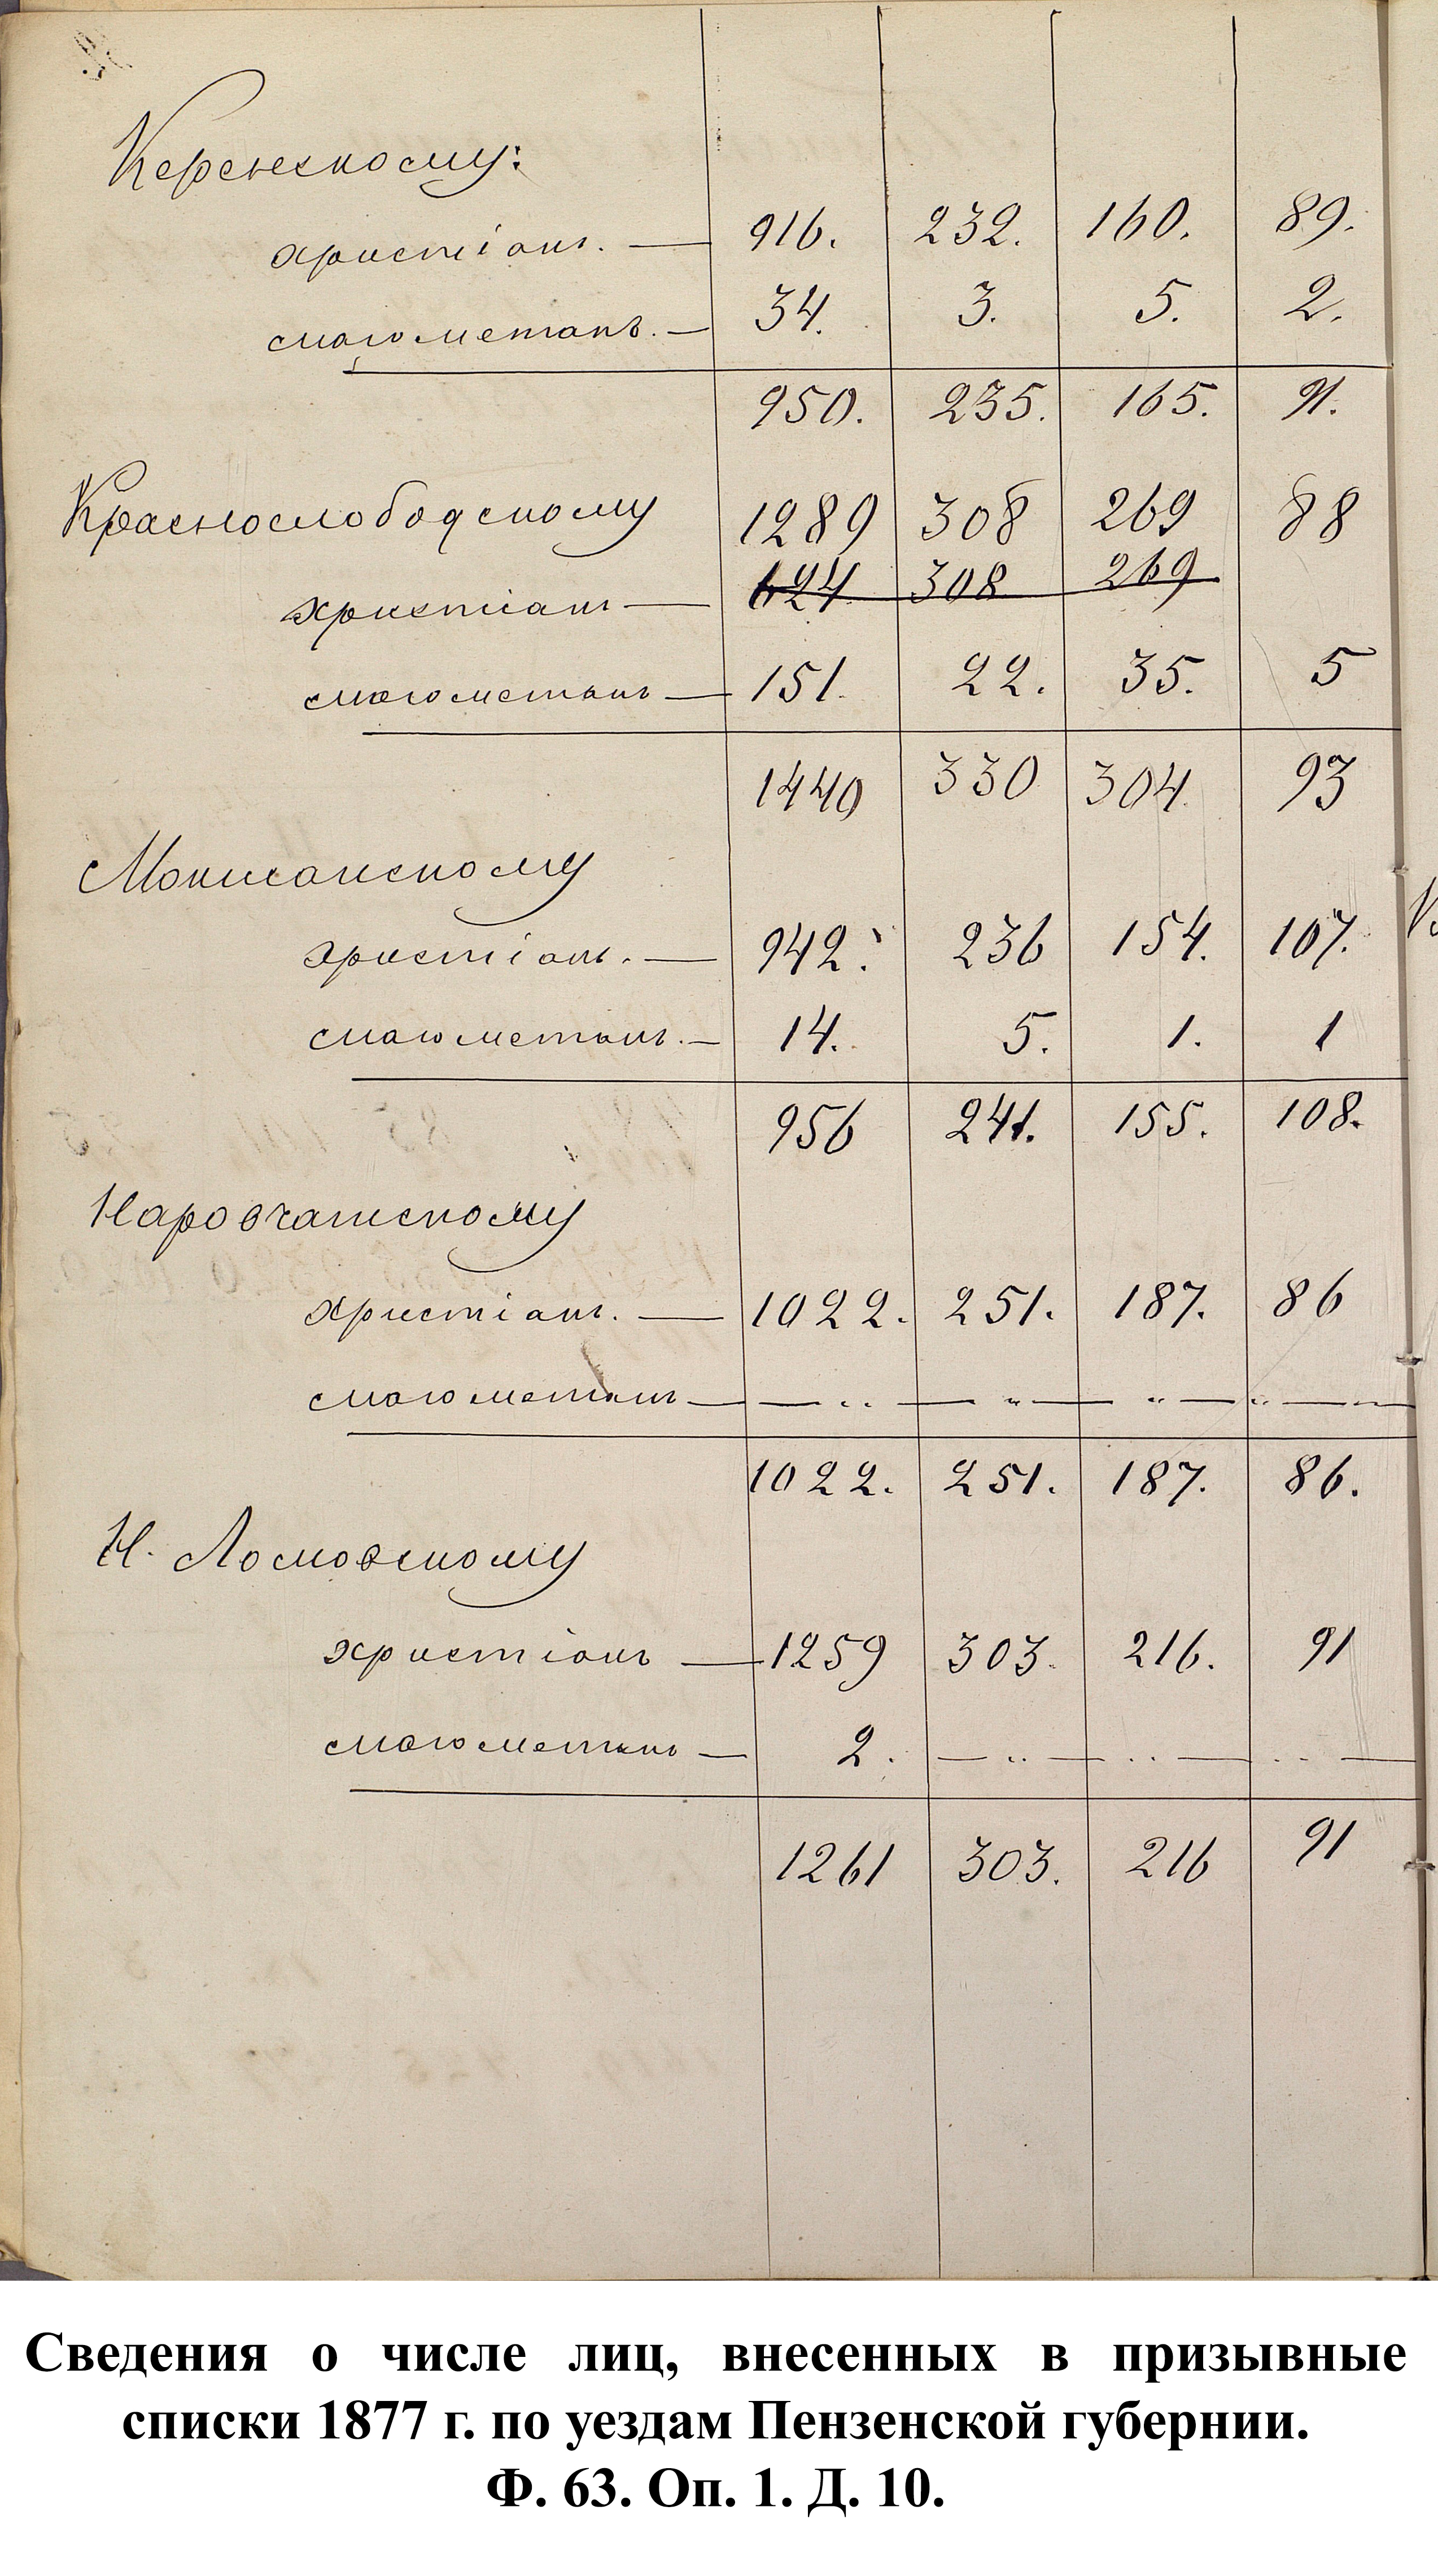 Керенскому:
христіанъ. — 916. 232. 160. 89.
магометанъ. — 34. 3. 5. 2.
950. 235. 165. 91.
Краснослободскому 1289 308 269 88
христіанъ — 624 308 269
магометанъ — 151. 22. 35. 5
1440 330 304. 93
Мокшанскому
христіанъ. — 942. 236 154. 107.
магометанъ. — 14. 5. 1. 1
956 241. 155. 108.
Наровчатскому
христіанъ. — 1022. 251. 187. 86
магометанъ — — „ — „ — „ — „ —
1022. 251. 187. 86.
Н. Ломовскому
христіанъ — 1259 303. 216. 91
магометанъ — 2. — „ — „ — „ —
1261 303. 216 91
Сведения о числе лиц, внесенных в призывные
списки 1877 г. по уездам Пензенской губернии.
Ф. 63. Оп. 1. Д. 10.